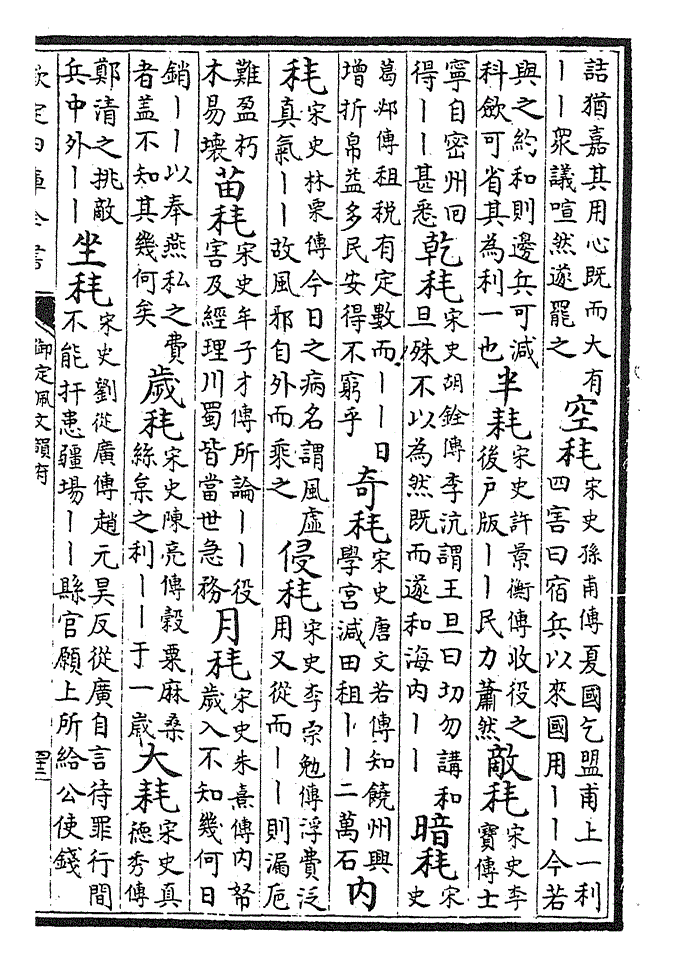 詰猶嘉其用心既而大有丨丨衆議喧然遂罷之空耗宋史孫甫傳夏國乞盟甫上一利四害曰宿兵以來國用丨丨今若
與之約和則邊兵可減科歛可省其為利一也半耗宋史許景衡傳收役之後户版丨丨民力蕭然敵耗宋史李寶傳士
寧自密州回得丨丨甚悉乾耗宋史胡銓傳李沆謂王旦曰切勿講和旦殊不以為然既而遂和海内丨丨暗耗宋史
葛邲傳租税有定數而丨丨日增折帛益多民安得不窮乎奇耗宋史唐文若傳知饒州興學宫減田租丨丨二萬石内
耗宋史林栗傳今日之病名謂風虛真氣丨丨故風邪自外而乘之侵耗宋史李宗勉傳浮費泛用又從而丨丨則漏巵
難盈朽木易壞苗耗宋史牟子才傳所論丨丨役害及經理川蜀皆當世急務月耗宋史朱熹傳内帑歲入不知幾何日
銷丨丨以奉燕私之費者盖不知其幾何矣歲耗宋史陳亮傳穀粟麻桑絲枲之利丨丨于一歲大耗宋史真德秀傳
鄭清之挑敵兵中外丨丨坐耗宋史劉從廣傳趙元昊反從廣自言待罪行間不能扞患疆場丨丨縣官願上所給公使錢
欽定四庫全書
御定佩文韻府